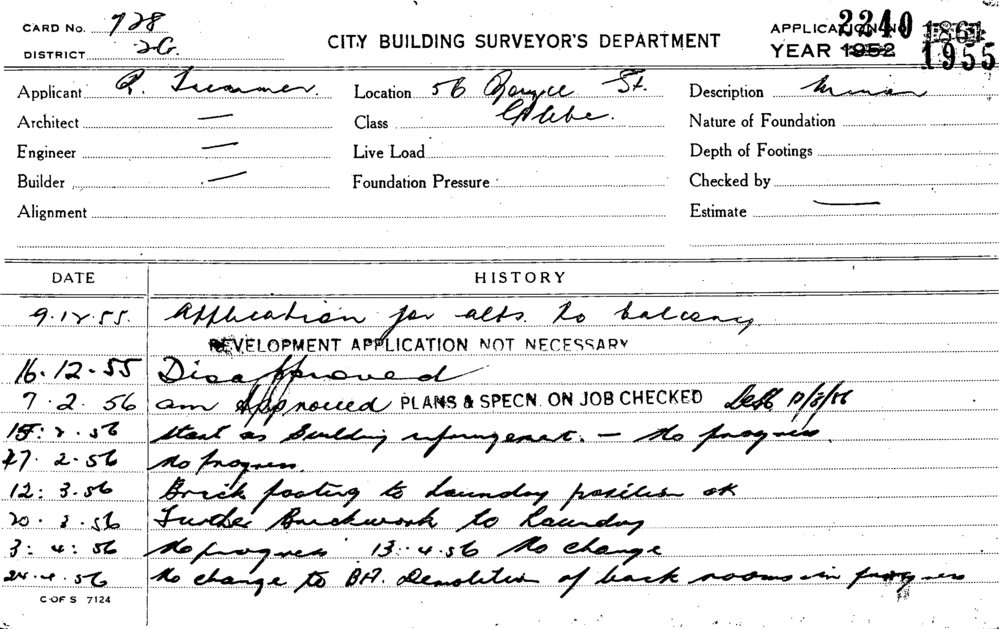 CARD No. 728
DISTRICT 2G.
CITY BUILDING SURVEYOR'S DEPARTMENT
APPLICATION No. 2240 1861
YEAR 1952 1955
Applicant Location 56 St. Description
Glebe.
Architect — Class Nature of Foundation
Engineer — Live Load Depth of Footings
Builder — Foundation Pressure Checked by
Alignment Estimate —
DATE HISTORY
9.12.55. Application for alts. to balcony
DEVELOPMENT APPLICATION NOT NECESSARY
16.12.55 Disapproved
7.2.56 am Approved PLANS & SPECN. ON JOB CHECKED
15.2.56 Start as Building infringement. — No progress.
27.2.56 No progress.
12:3.56 Brick footing to laundry position ok
20.3.56 Further Brickwork to laundry
3:4:56 No progress 13.4.56 No change
24.4.56 No change to BA. Demolition of back rooms in progress
C OF S 7124